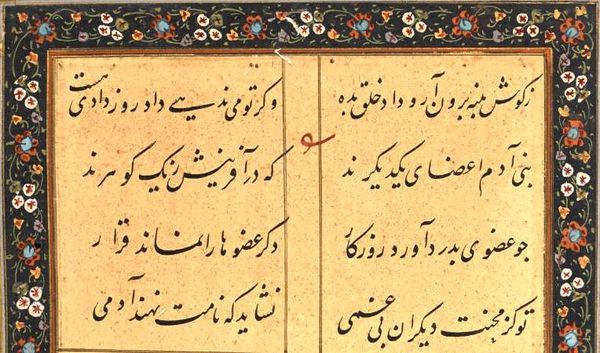 زگوش پنبه برون آر و داد خلق بده وگر تو می ندهی داد روز دادی هست
بنی آدم اعضای یکدیگرند که در آفرینش ز یک گوهرند
چو عضوی بدرد آورد روزگار دگر عضوها را نماند قرار
تو کز محنت دیگران بی غمی نشاید که نامت نهند آدمی